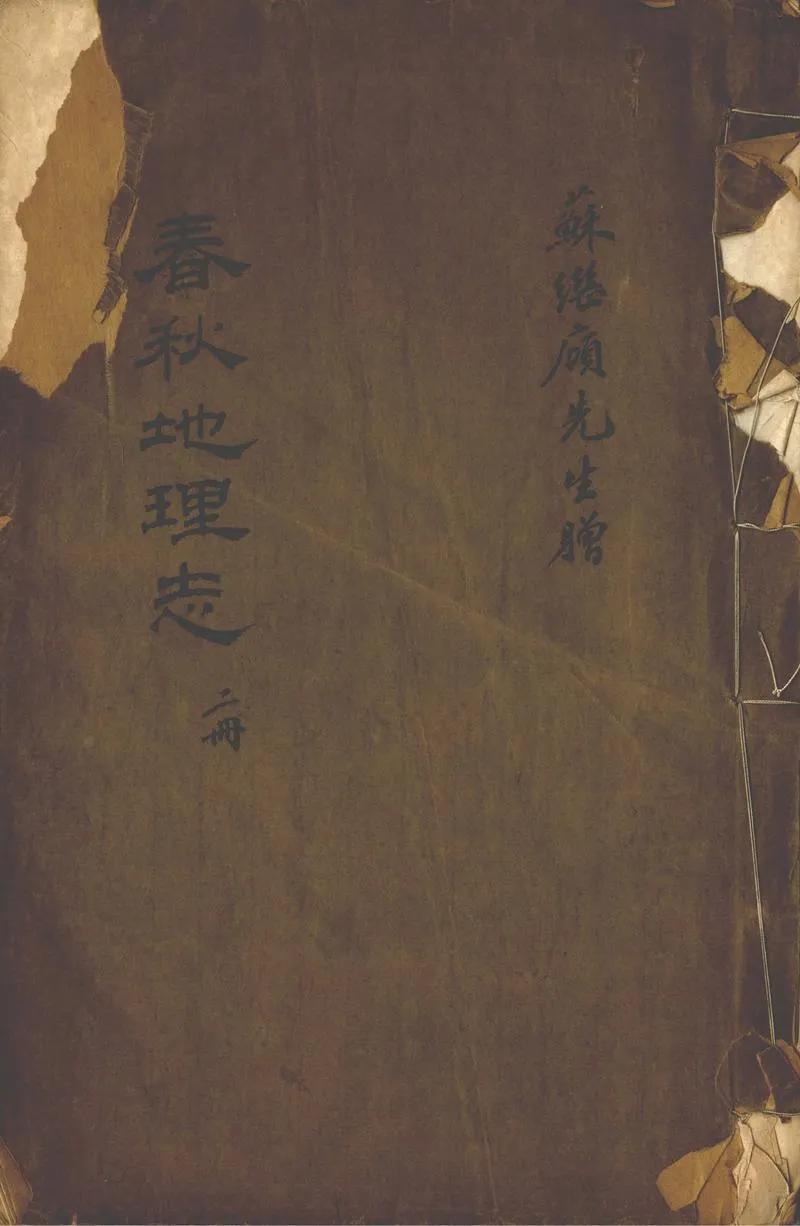 蘇繼廎先生贈
春秋地理志 二冊